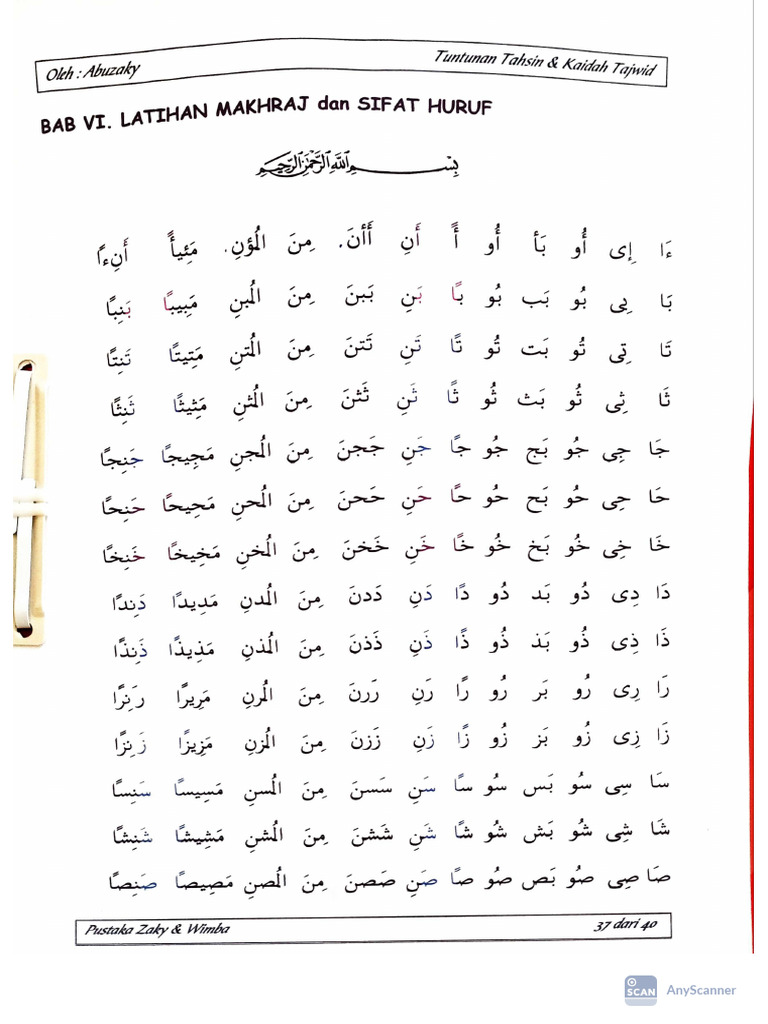 Oleh : Abuzaky
Tuntunan Tahsin & Kaidah Tajwid
BAB VI. LATIHAN MAKHRAJ dan SIFAT HURUF
بِسْــــمِ اللَّهِ الرَّحْمٰنِ الرَّحِيْمِ
ءَا إِى أُو بَأ أُو أً أَنِ أَأنَ. مِنَ الْمُؤنِ. مَئِيأً أَنِءاً
بَا بِى بُو بَب بُو بًا بَنِ بَبنَ مِنَ الْمُبنِ مَبِيبًا بَنِبًا
تَا تِى تُو بَت تُو تًا تَنِ تَتنَ مِنَ الْمُتنِ مَتِيتًا تَنِتًا
ثَا ثِى ثُو بَث ثُو ثًا ثَنِ ثَثنَ مِنَ الْمُثنِ مَثِيثًا ثَنِثًا
جَا جِى جُو بَج جُو جًا جَنِ جَجنَ مِنَ الْمُجنِ مَجِيجًا جَنِجًا
حَا حِى حُو بَح حُو حًا حَنِ حَحنَ مِنَ الْمُحنِ مَحِيحًا حَنِحًا
خَا خِى خُو بَخ خُو خًا خَنِ خَخنَ مِنَ الْمُخنِ مَخِيخًا خَنِخًا
دَا دِى دُو بَد دُو دًا دَنِ دَدنَ مِنَ الْمُدنِ مَدِيدًا دَنِدًا
ذَا ذِى ذُو بَذ ذُو ذًا ذَنِ ذَذنَ مِنَ الْمُذنِ مَذِيذًا ذَنِذًا
رَا رِى رُو بَر رُو رًا رَنِ رَرنَ مِنَ الْمُرنِ مَرِيرًا رَنِرًا
زَا زِى زُو بَز زُو زًا زَنِ زَزنَ مِنَ الْمُزنِ مَزِيزًا زَنِزًا
سَا سِى سُو بَس سُو سًا سَنِ سَسنَ مِنَ الْمُسنِ مَسِيسًا سَنِسًا
شَا شِى شُو بَش شُو شًا شَنِ شَشنَ مِنَ الْمُشنِ مَشِيشًا شَنِشًا
صَا صِى صُو بَص صُو صًا صَنِ صَصنَ مِنَ الْمُصنِ مَصِيصًا صَنِصًا
Pustaka Zaky & Wimba
37 dari 40
SCAN AnyScanner